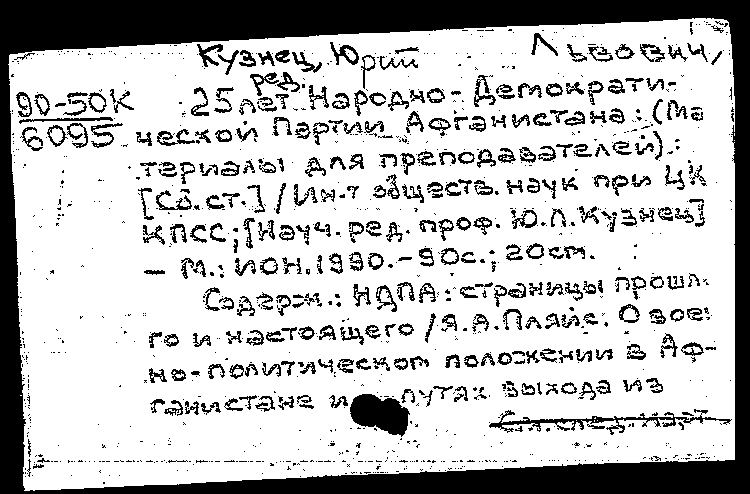 Кузнец, Юрий Львович,
ред.
90-50К
6095
25 лет Народно-Демократи-
ческой Партии Афганистана: (Ма
териалы для преподавателей).:
[Сб.ст.] / Ин-т обществ. наук при ЦК
КПСС; [Науч. ред. проф. Ю.Л.Кузнец]
— М.: ИОН. 1990. - 90с.; 20см.
Содерж.: НДПА: страницы прошл.
го и настоящего / Я.А.Пляйс. О вое
но-политическом положении в Аф-
ганистане и путях выхода из
См. след. карт